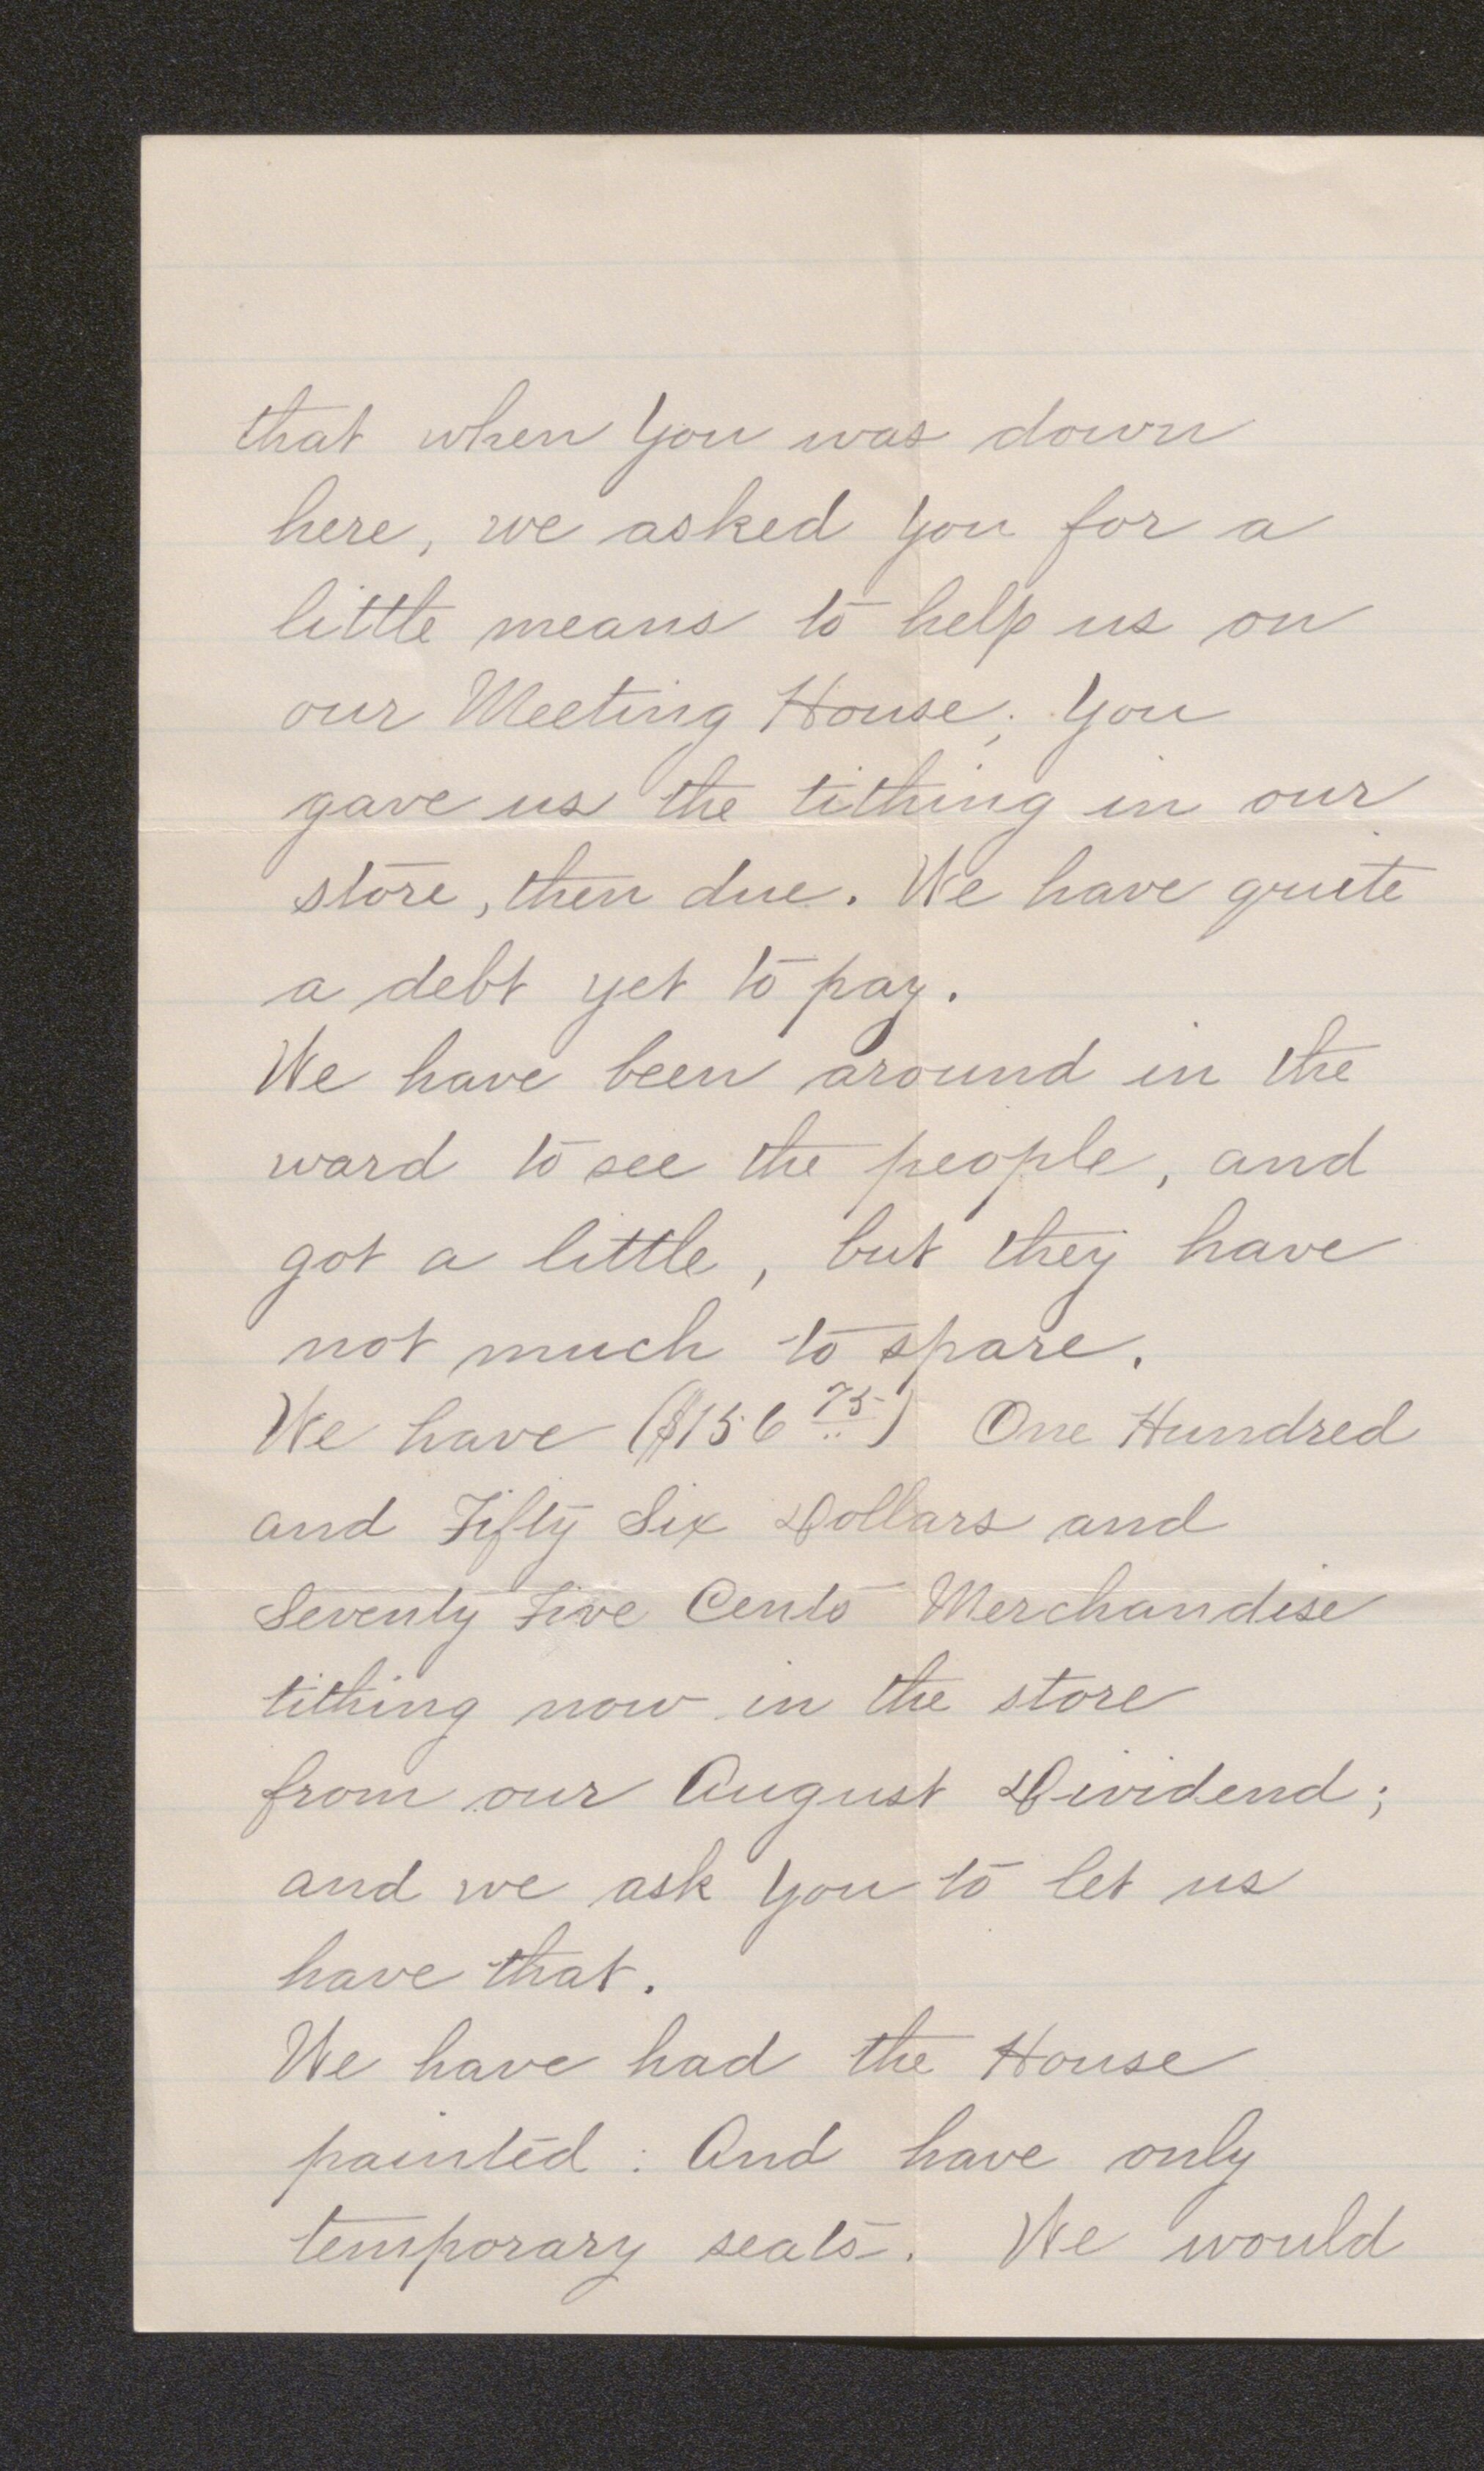 that when you was down
here, we asked you for a
little means to help us on
our Meeting House; you
gave us the tithing in our
store, then due. We have quite
a debt yet to pay.
We have been around in the
ward to see the people, and
got a little, but they have
not much to spare.
We have ($156 75) One Hundred
and Fifty Six Dollars and
Seventy Five Cents Merchandise
tithing now in the store
from our August Dividend;
and we ask you to let us
have that.
We have had the House
painted: And have only
temporary seats. We would